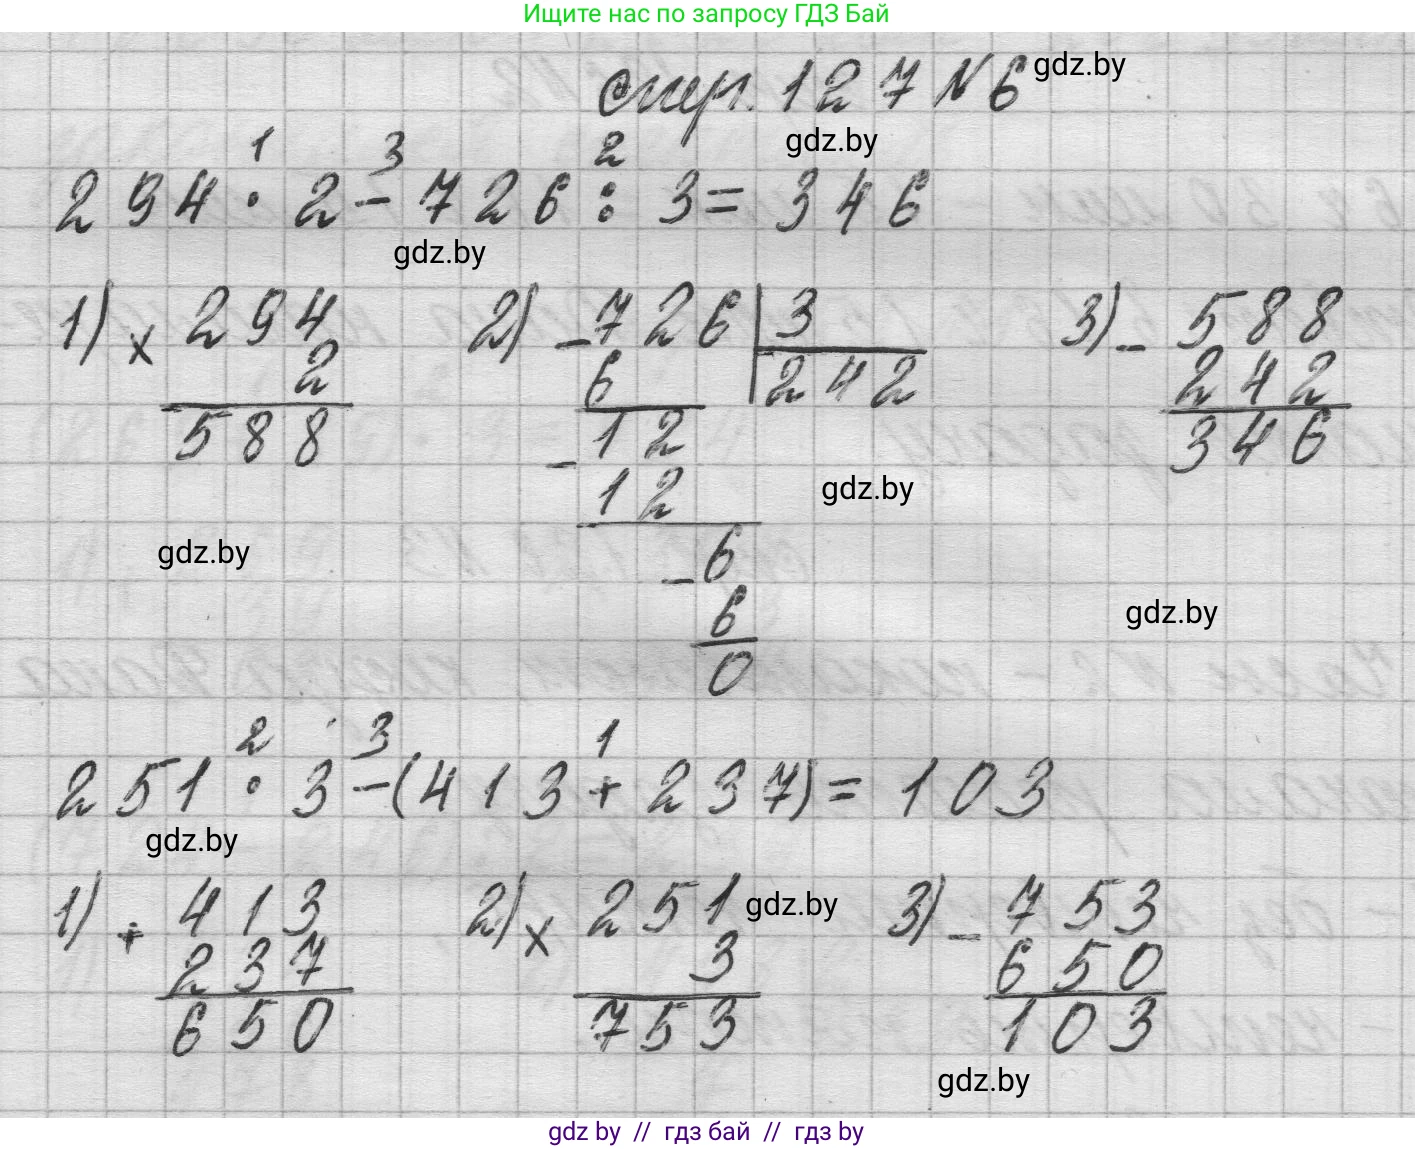 Ищите нас по запросу ГДЗ Бай
стр. 127 №6
gdz.by
gdz.by
1 3 2
294 · 2 - 726 : 3 = 346
gdz.by
1) × 294 2) - 726 | 3 3) - 588
2 6 242 242
588 - 12 346
12 gdz.by
gdz.by - 6
6 gdz.by
0
2 3 1
251 · 3 - (413 + 237) = 103
gdz.by
1) + 413 2) × 251 gdz.by 3) - 753
237 3 650
650 753 103
gdz.by
gdz by // гдз бай // гдз by